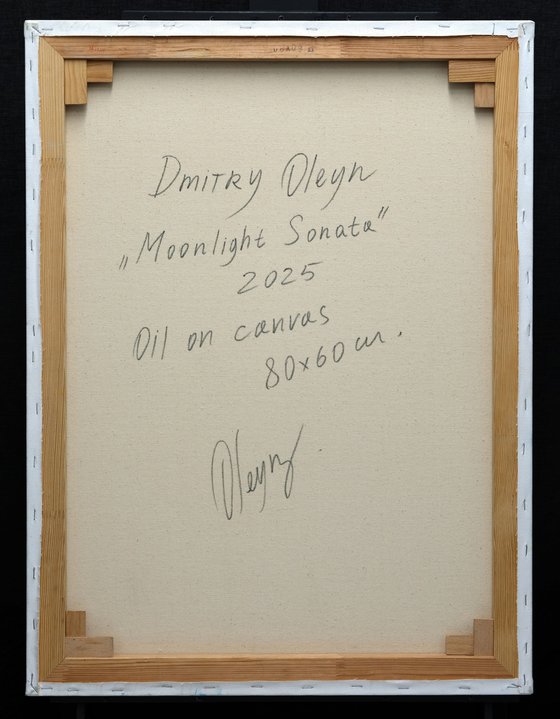 Dmitry Oleyn
„Moonlight Sonata”
2025
Oil on canvas
80x60 cm.
Oleyn